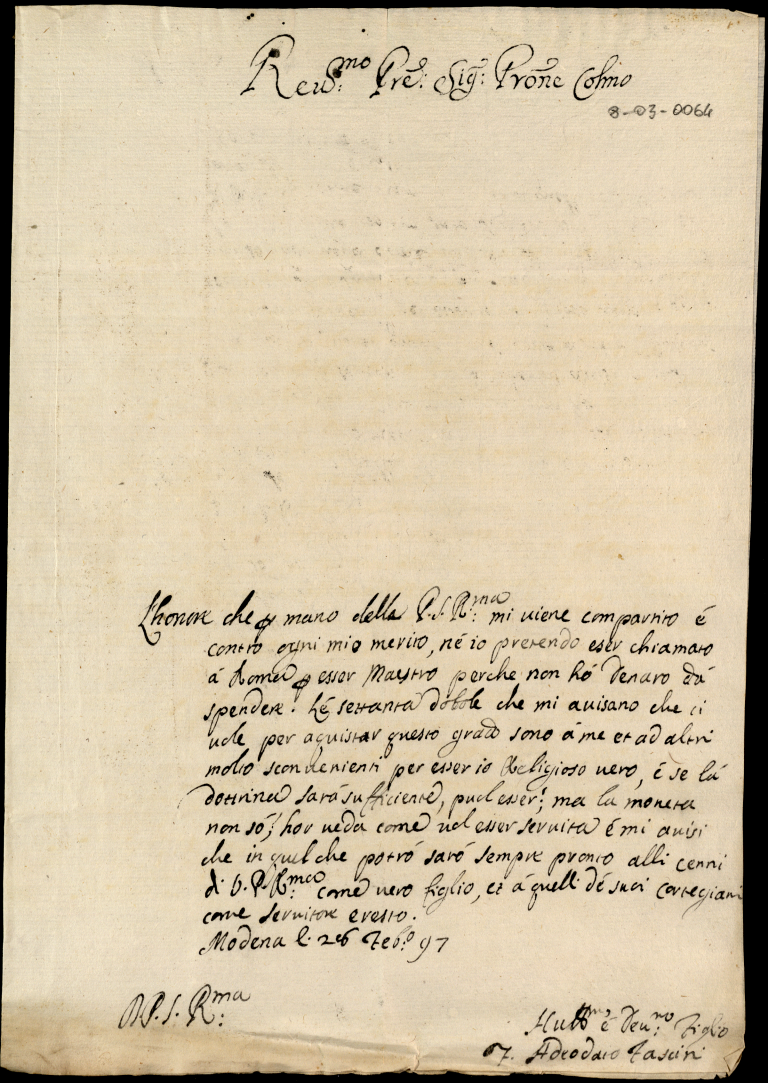 Reu.mo Pre: Sig: Prone Colmo
8-03-0064
L'honore che p mano della P. S. R:ma mi uiene compartito é
contro ogni mio merito, né io pretendo eser chiamato
á Roma p esser Maestro perche non hó denaro dá
spendere. Lé settanta dobole che mi auisano che ci
uole per aquistar questo grado sono á me et ad altri
molto sconuenienti per esser io Religioso uero, é se lá
dottrina sará sufficiente, puol esser; ma la moneta
non só; hor ueda come uol esser seruita é mi auisi
che in quel che potró saró sempre pronto alli cenni
di V. P. R:ma come uero figlio, et á quelli dé suoi cortegiani
come seruitore e resto.
Modena li 26 Feb:o 97
D. P. S. R:ma
é Deu:mo Figlio
F. Adeodato